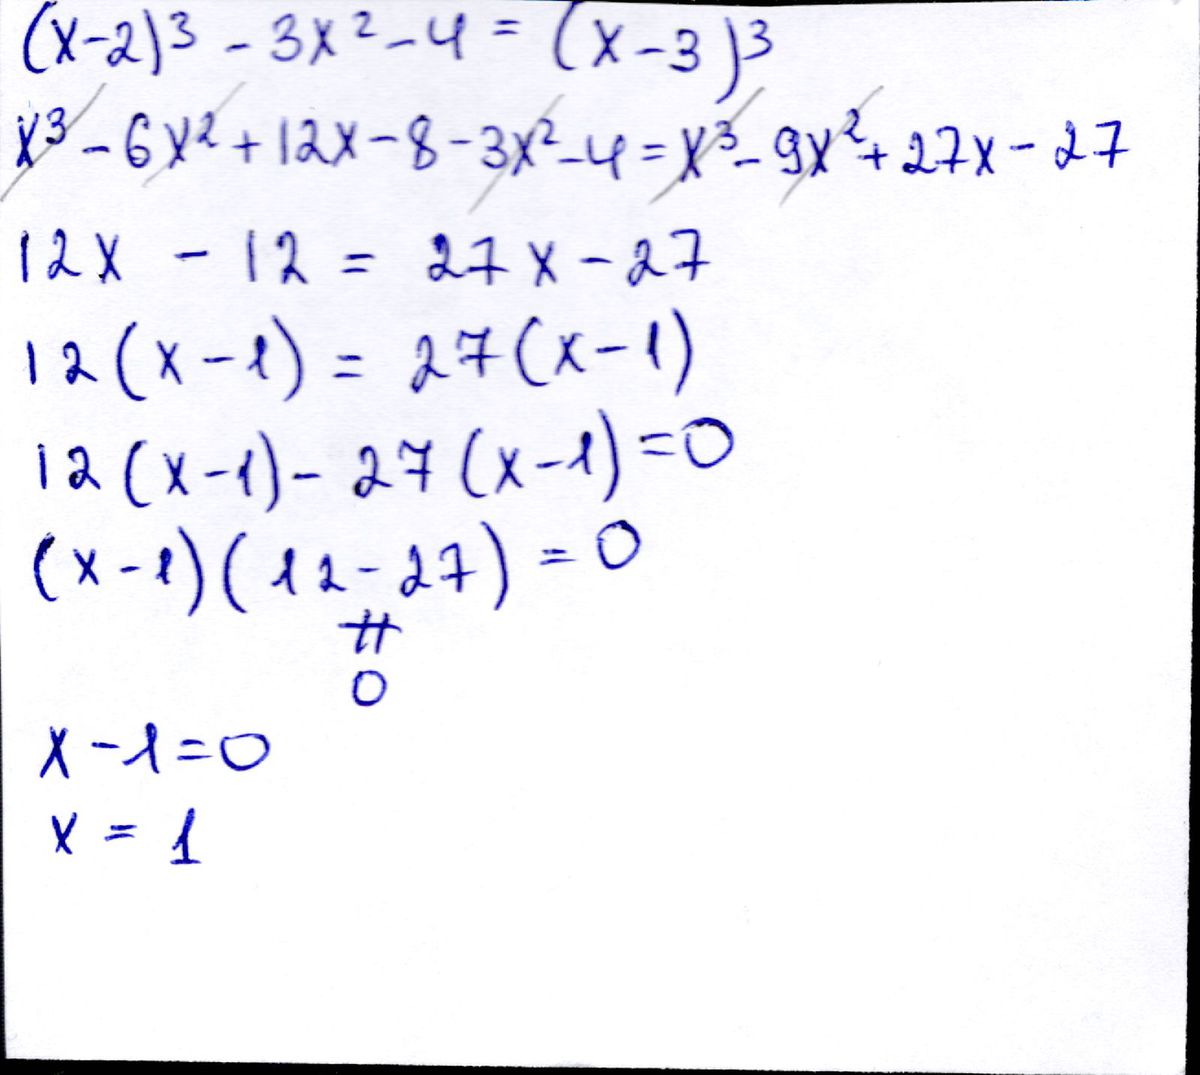 (x-2)³ - 3x² - 4 = (x-3)³
x³ - 6x² + 12x - 8 - 3x² - 4 = x³ - 9x² + 27x - 27
12x - 12 = 27x - 27
12(x-1) = 27(x-1)
12(x-1) - 27(x-1) = 0
(x-1)(12-27) = 0
≠
0
x - 1 = 0
x = 1